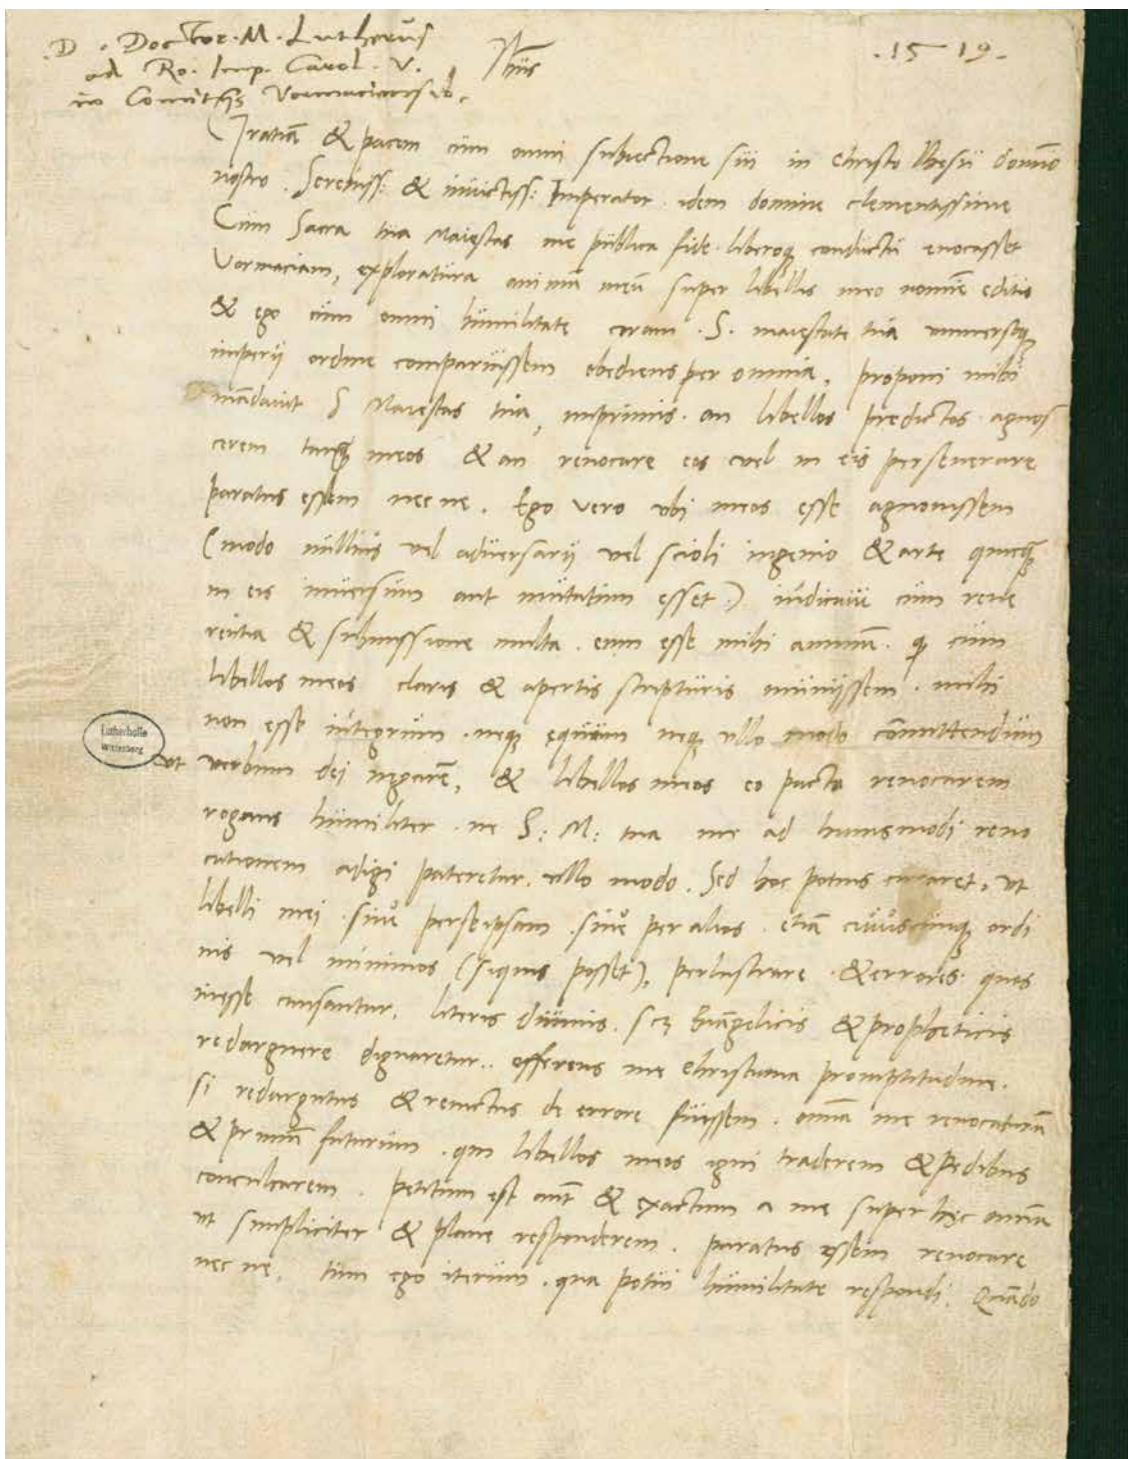 D. Doctor. M. Lutherus
ad Ro. Imp. Carol. V.
in Comitijs
Jhüs
.1519.
Gratiā & pacem cum omni subiectione sui in Christo Ihesu domīo
nostro. Sereniss: & inuictiss: Imperator idem domine clementissime
Cum Sacra tua Maiestas me publica fide liberoq₃ conductu euocasset
Vormaciam, exploratura animū meū super libellis meo nomīe editis
& ego cum omni humilitate coram .S. maiestate tua vniuersoq₃
imperij ordine comparuissem obediens per omnia, proponi mihi
mādauit S Maiestas tua, inprimis. an libellos predictos agnos
cerem tanq̄ meos & an reuocare eos vel in eis perseuerare
paratus essem nec ne. Ego vero vbi meos esse agnouissem
(modo nullius vel aduersarij vel scioli ingenio & arte quicq̄
in eis inuersum aut mutatum esset) iudicaui cum reue
rētia & submissione multa. eum esse mihi animū. qꝫ cum
libellos meos claris & apertis scripturis muniissem. mihi
non esse integrum. neq₃ equum neq₃ vllo modo cōmittendum
vt verbum dei negarē, & libellos meos eo pacto reuocarem
rogans humiliter. ne S: M: tua me ad huiusmodi reuo
cationem adigi pateretur. vllo modo. Sed hoc potius curaret, vt
libelli mei. siue perseipsam. siue per alios. etiā cuiuscunq₃ ordi
nis vel minimos (siquis posset), perlustrare & errores quos
inesse causantur, literis diuinis. Euāgelicis & propheticis
redarguere dignaretur.. offerens me Christiana promptitudine.
si redargutus & reuictus de errore fuissem. omīa me reuocaturū
& primū futurum. qui libellos meos igni traderem & pedibus
conculcarem. Petitum est aūt & exactum a me super hęc omīa
vt simpliciter & plane responderem. paratus essem reuocare
nec ne, tum ego iterum. qua potui humilitate respondi. Quādo
Lutherhalle
Wittenberg